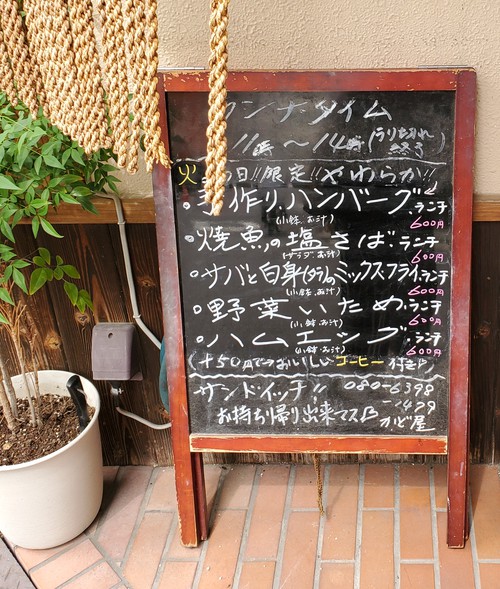 ランチタイム
11時〜14時(うり切れ終了)
火の日!!限定!!やわらか!!
・手作りハンバーグ.ランチ
(小鉢、お汁) 600円
・焼魚の塩さば.ランチ
(サラダ、お汁) 600円
・サバと白身(タラ)のミックスフライ.ランチ
(小鉢、お汁) 600円
・野菜いため.ランチ
(小鉢、お汁) 600円
・ハムエッグ.ランチ
(小鉢、お汁) 600円
(+50円でおいしいコーヒー付き)
サンドイッチ!! 080-6398
-2479
お持ち帰り出来マス かど屋